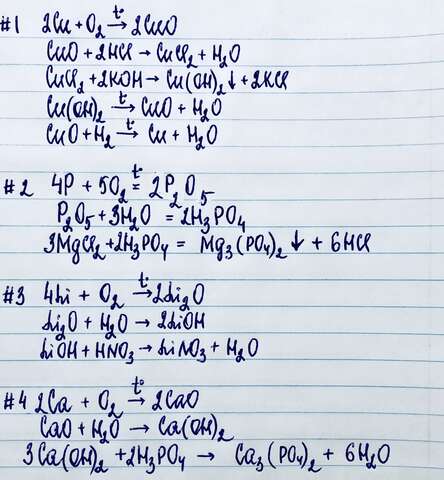 #1 2Cu + O₂ →t° 2CuO
CuO + 2HCl → CuCl₂ + H₂O
CuCl₂ + 2KOH → Cu(OH)₂↓ + 2KCl
Cu(OH)₂ →t° CuO + H₂O
CuO + H₂ →t° Cu + H₂O
#2 4P + 5O₂ =t° 2P₂O₅
P₂O₅ + 3H₂O = 2H₃PO₄
3MgCl₂ + 2H₃PO₄ = Mg₃(PO₄)₂↓ + 6HCl
#3 4Li + O₂ →t° 2Li₂O
Li₂O + H₂O → 2LiOH
LiOH + HNO₃ → LiNO₃ + H₂O
#4 2Ca + O₂ →t° 2CaO
CaO + H₂O → Ca(OH)₂
3Ca(OH)₂ + 2H₃PO₄ → Ca₃(PO₄)₂ + 6H₂O